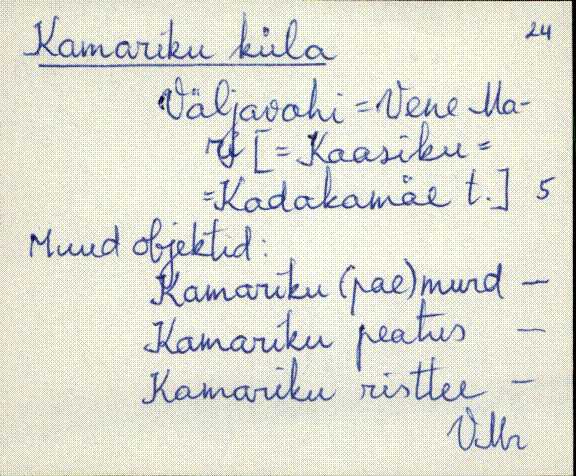 Kamariku küla 24
Väljavahi = Vene Ma-
ri [= Kaasiku =
= Kadakamäe t.] 5
Muud objektid:
Kamariku (pae)murd —
Kamariku peatus —
Kamariku risttee —
VMr